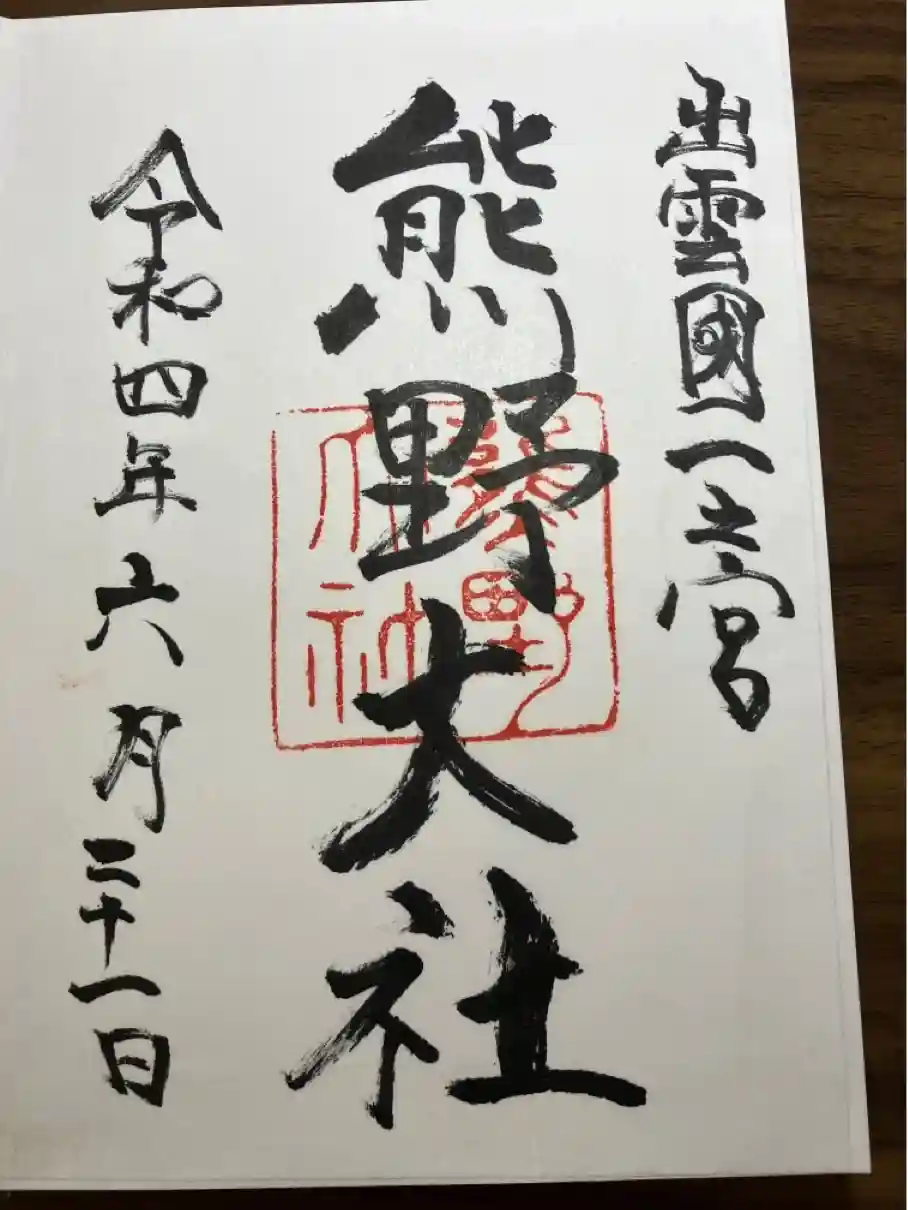 出雲國一之宮
熊野大社
熊野大社
令和四年六月二十一日